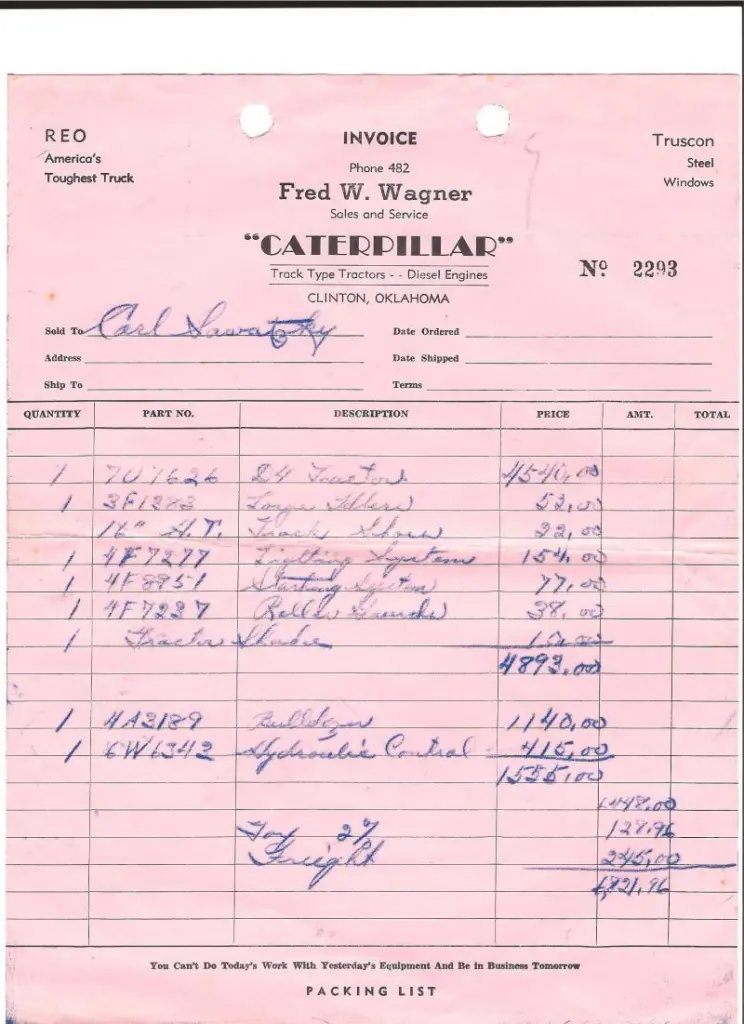 REO
America's
Toughest Truck
INVOICE
Phone 482
Fred W. Wagner
Sales and Service
"CATERPILLAR"
Track Type Tractors - - Diesel Engines
CLINTON, OKLAHOMA
Truscon
Steel
Windows
No. 2293
Sold To Carl Sawatzky
Date Ordered
Address
Date Shipped
Ship To
Terms
QUANTITY PART NO. DESCRIPTION PRICE AMT. TOTAL
1 7U7626 D4 Tractor 4540.00
1 3F1383 Idlers 52.00
16" H.T. Track Shoes 22.00
1 4F7277 Lighting System 154.00
1 4F8951 Starting System 77.00
1 4F7237 Roller Guards 38.00
1 Tractor
4893.00
1 4A3189 Bulldozer 1140.00
1 6W6342 Hydraulic Control 415.00
1555.00
6448.00
Tax 2% 128.96
Freight 245.00
6,821.96
You Can't Do Today's Work With Yesterday's Equipment And Be in Business Tomorrow
PACKING LIST